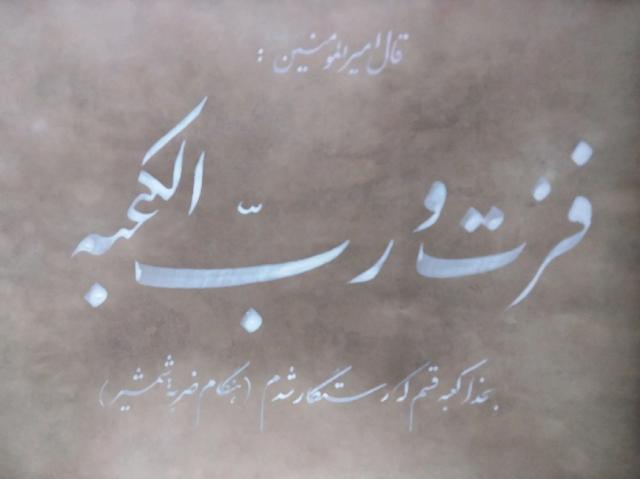 قال امیرالمومنین :
فزت و ربّ الکعبه
بخدا کعبه قسم که رستگار شدم (هنگام ضربه شمشیر)